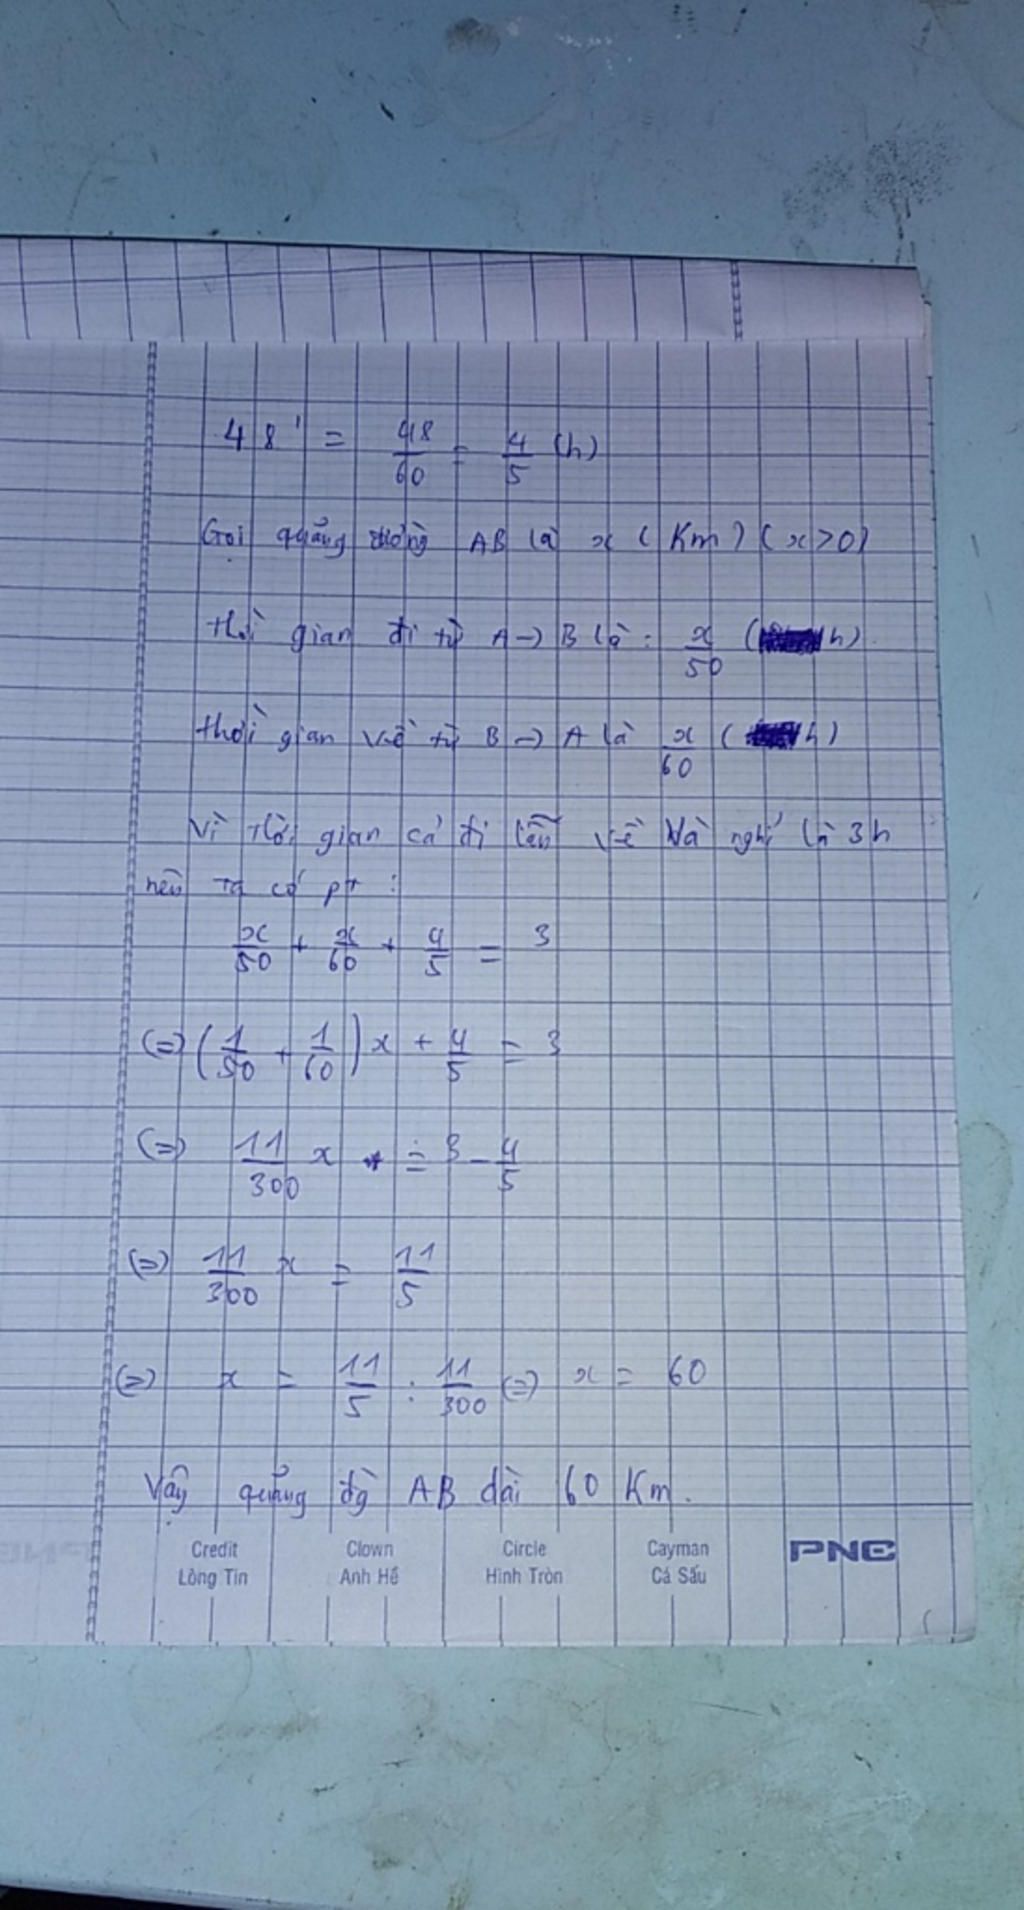 48' = 48/60 = 4/5 (h)
Gọi quãng đường AB là x (Km) (x>0)
thời gian đi từ A→B là: x/50 (h).
thời gian về từ B→A là x/60 (h)
Vì thời gian cả đi lẫn về và nghỉ là 3h
nên ta có pt:
x/50 + x/60 + 4/5 = 3
(=) (1/50 + 1/60)x + 4/5 = 3
(=) 11/300 x = 3 - 4/5
(=) 11/300 x = 11/5
(=) x = 11/5 : 11/300 (=) x = 60
Vậy quãng đg AB dài 60 Km.
Credit Clown Circle Cayman PNC
Lòng Tin Anh Hề Hình Tròn Cá Sấu